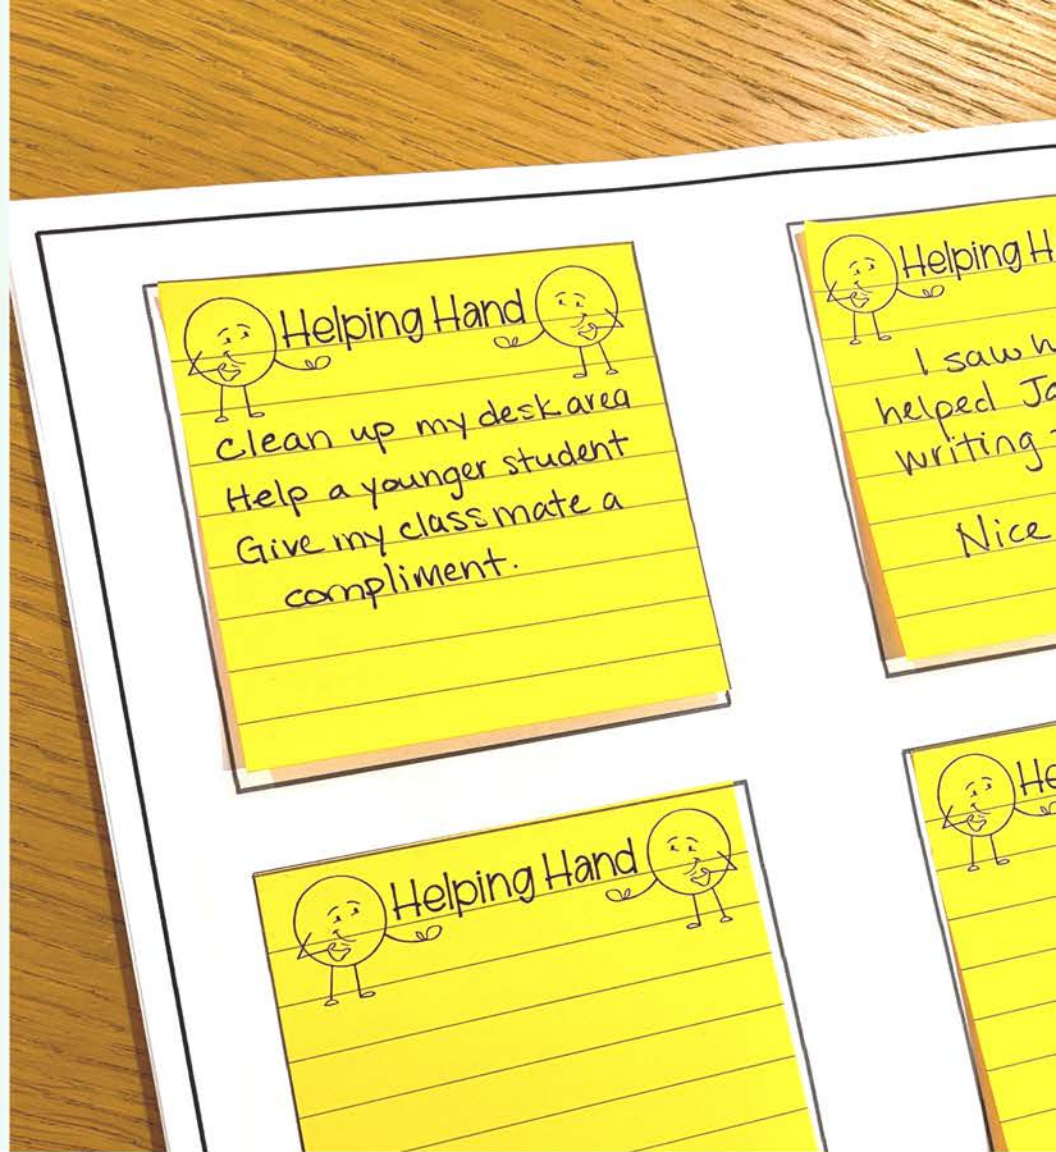 Helping Hand
clean up my desk area
Help a younger student
Give my classmate a
compliment.
Helping
I saw
helped
writing
Nice
Helping Hand